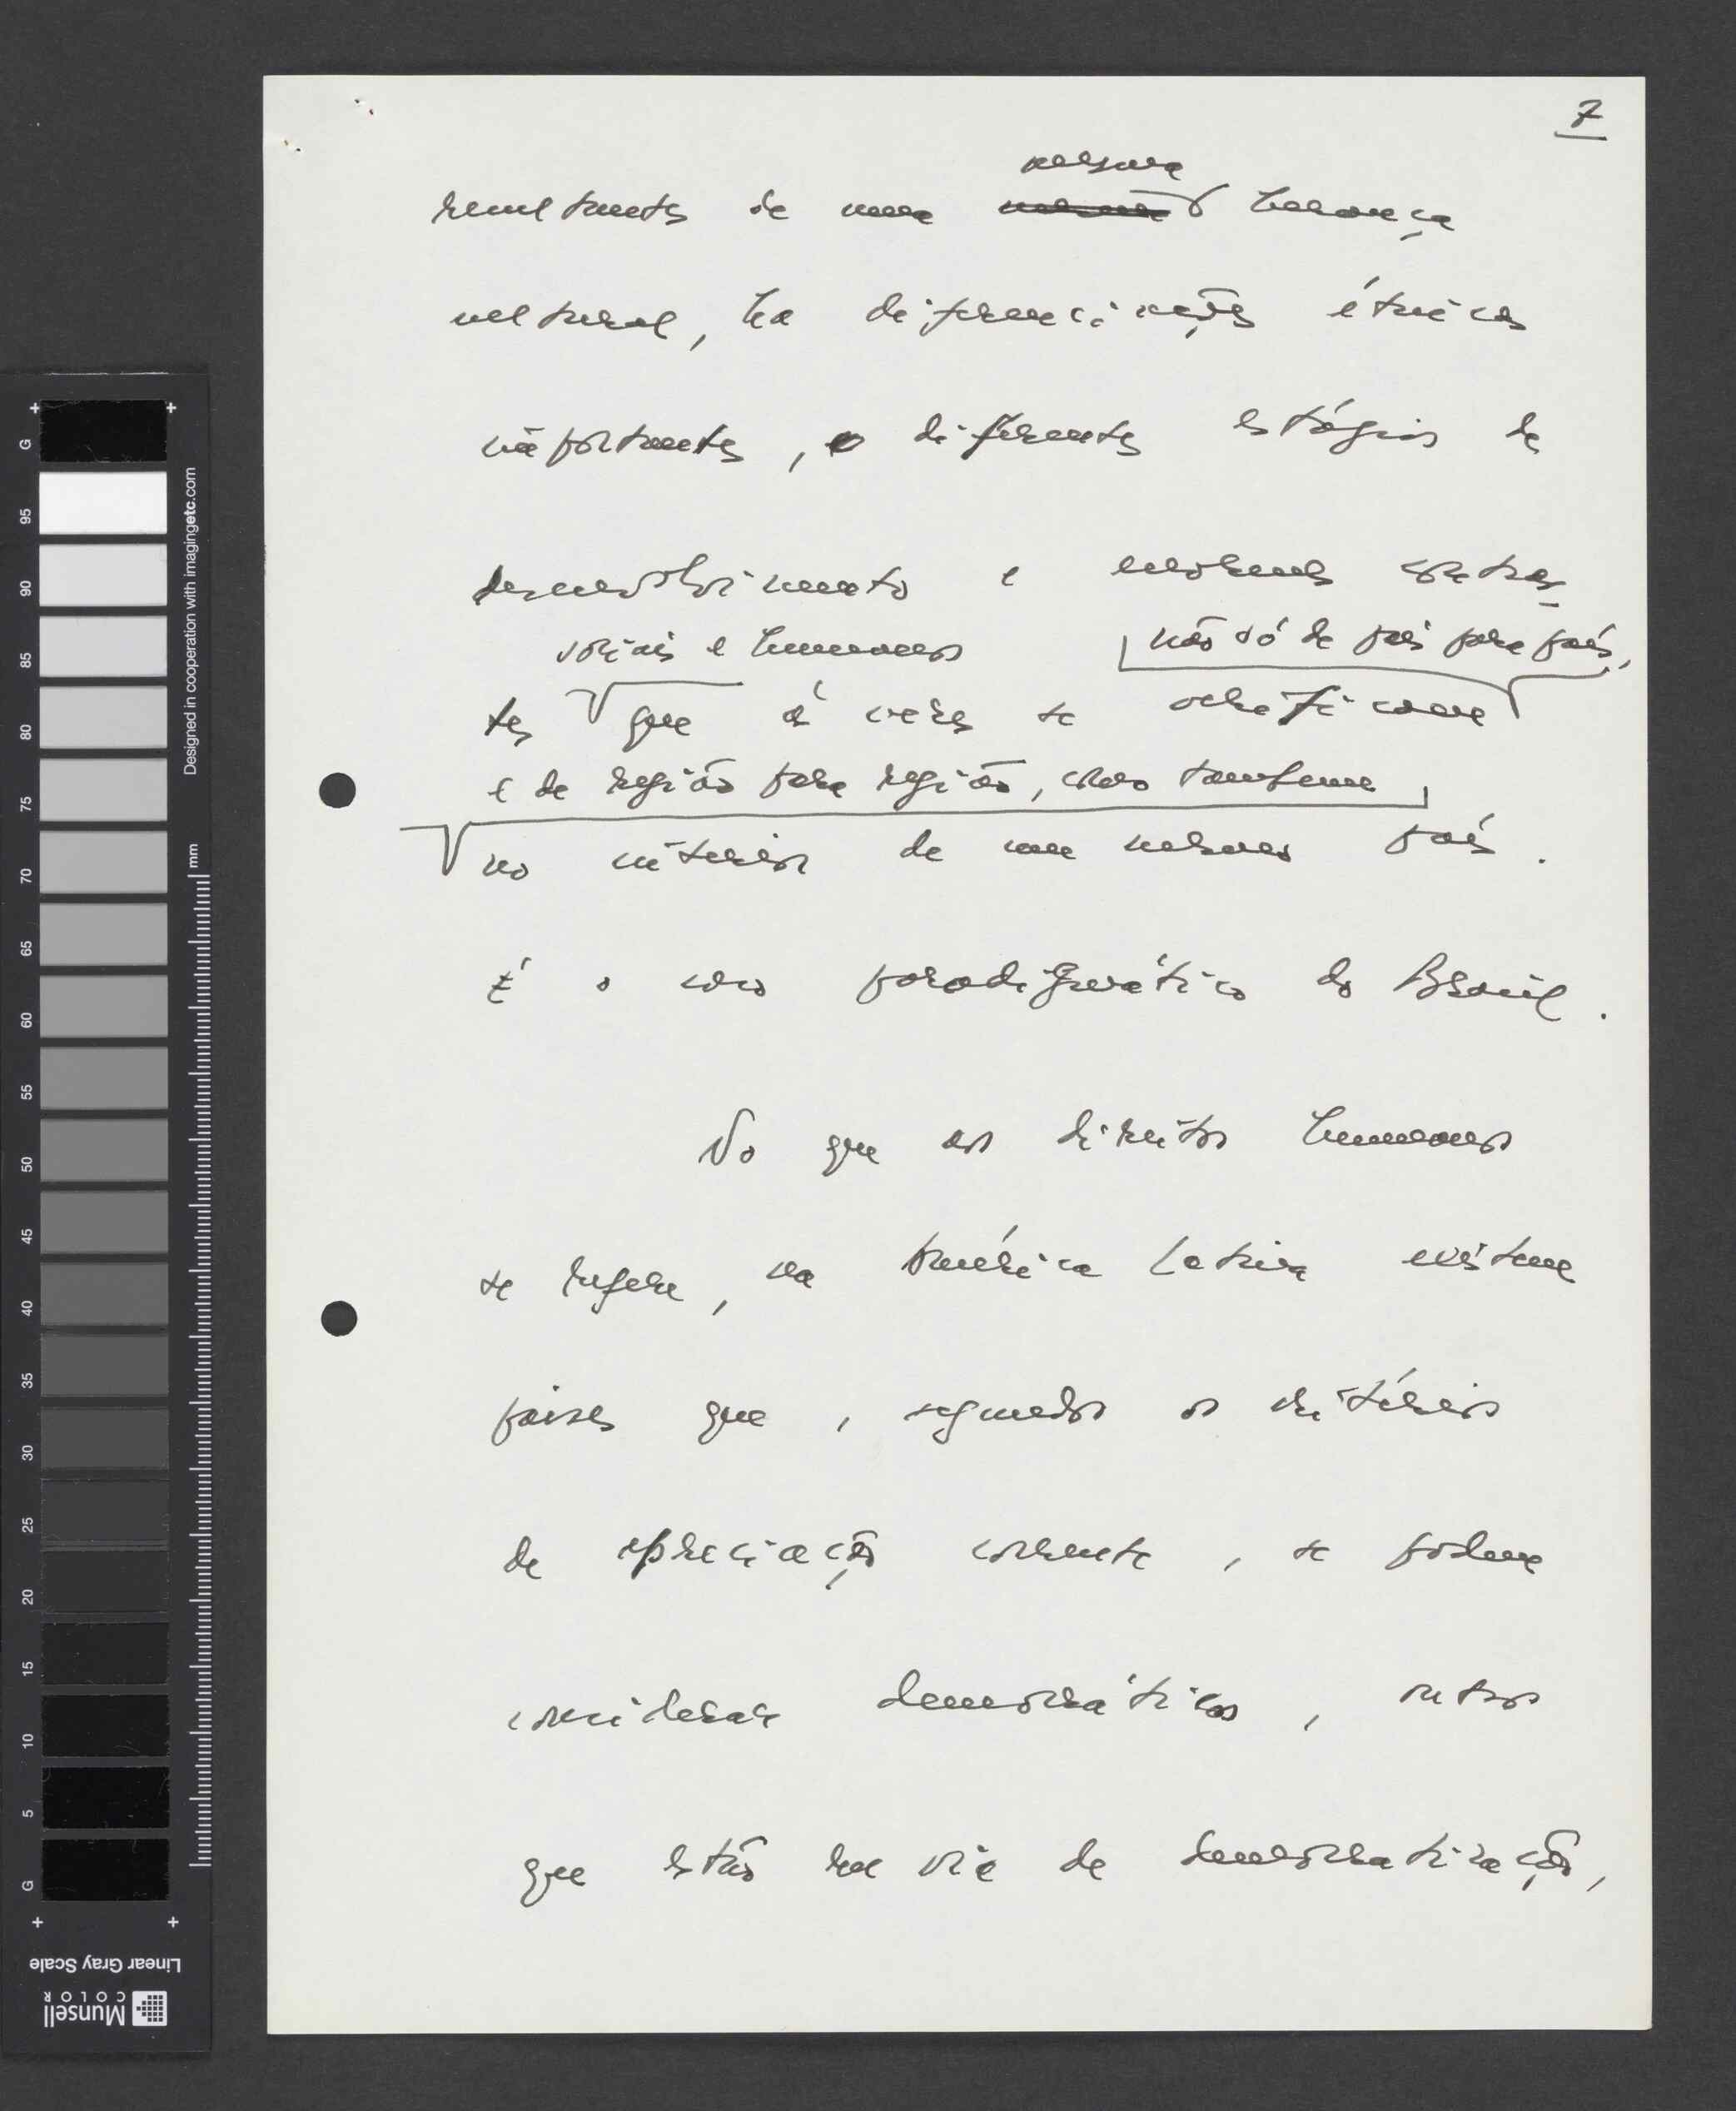 7
mesma
resultantes de uma herança
cultural, ha diferenciações étnicas
importantes, diferentes estágios de
desenvolvimento e enormes contras-
sociais e humanos não só de país para país,
tes que às vezes se verificam
e de região para região, como tambem
no interior de um mesmo país.
É o caso paradigmático do Brasil.
No que aos direitos humanos
se refere, na América Latina existem
paises que, segundo os critérios
de apreciação corrente, se podem
considerar democráticos, outros
que estão na via de democratização,
G
95
90
85
80
75
70
65
60
55
50
45
40
35
30
25
20
15
10
5
G
mm
Designed in cooperation with imagingetc.com
Linear Gray Scale
Munsell
COLOR